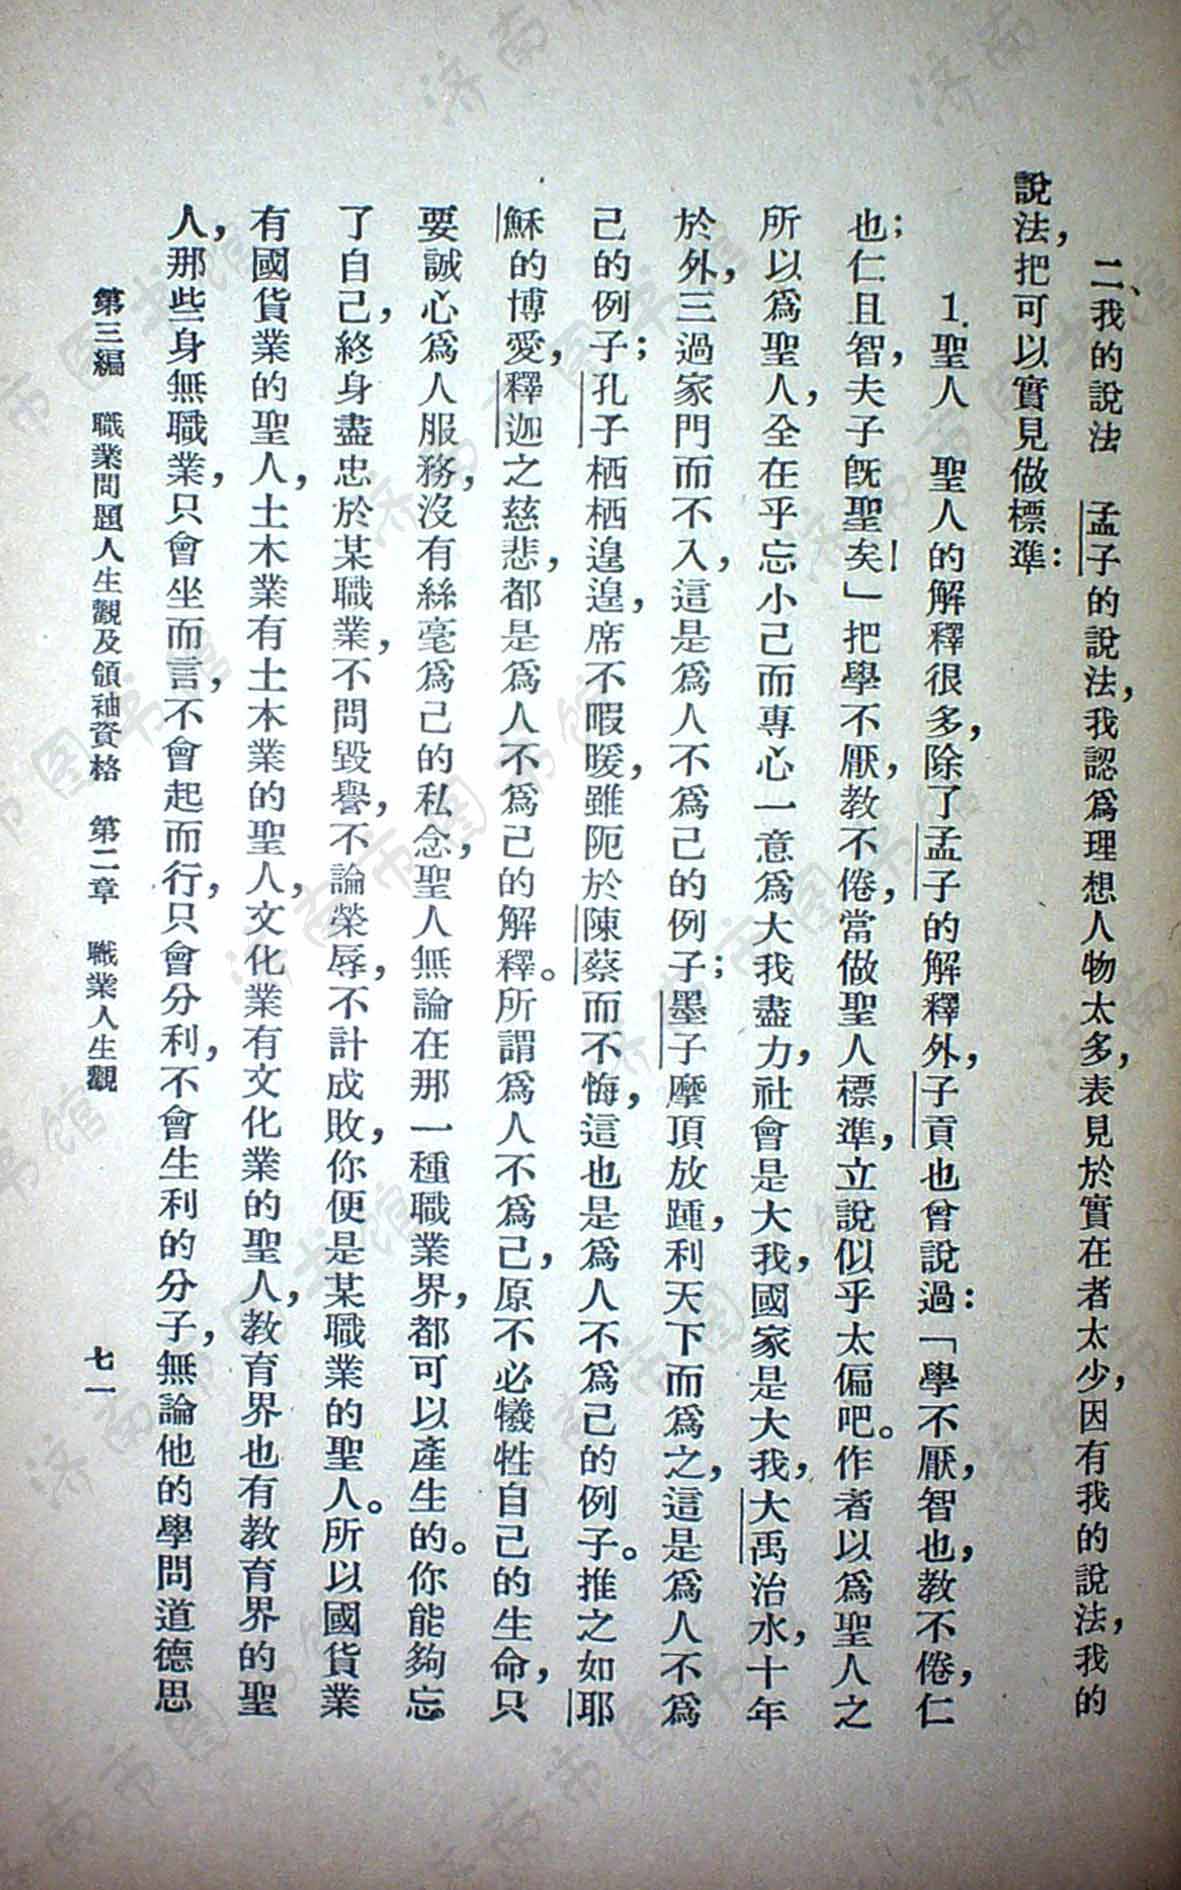 二、我的說法　孟子的說法，我認爲理想人物太多，表見於實在者太少，因有我的說法，我的
說法，把可以實見做標準：
1.聖人　聖人的解釋很多，除了孟子的解釋外，子貢也曾說過：「學不厭，智也，教不倦，仁
也；仁且智，夫子旣聖矣！」把學不厭，教不倦，當做聖人標準，立說似乎太偏吧。作者以爲聖人之
所以爲聖人，全在乎忘小己而專心一意爲大我盡力，社會是大我，國家是大我，大禹治水，十年
於外，三過家門而不入，這是爲人不爲己的例子；墨子摩頂放踵，利天下而爲之，這是爲人不爲
己的例子；孔子栖栖遑遑，席不暇暖，雖阨於陳蔡而不悔，這也是爲人不爲己的例子。推之如耶
穌的博愛，釋迦之慈悲，都是爲人不爲己的解釋。所謂爲人不爲己，原不必犧牲自己的生命，只
要誠心爲人服務，沒有絲毫爲己的私念，聖人無論在那一種職業界，都可以產生的。你能夠忘
了自己，終身盡忠於某職業，不問毀譽，不論榮辱，不計成敗，你便是某職業的聖人。所以國貨業
有國貨業的聖人，土木業有土本業的聖人，文化業有文化業的聖人，教育界也有教育界的聖
人，那些身無職業，只會坐而言，不會起而行，只會分利，不會生利的分子，無論他的學問道德思
第三編　職業問題人生觀及領袖資格　第二章　職業人生觀　七一
济南市图书馆